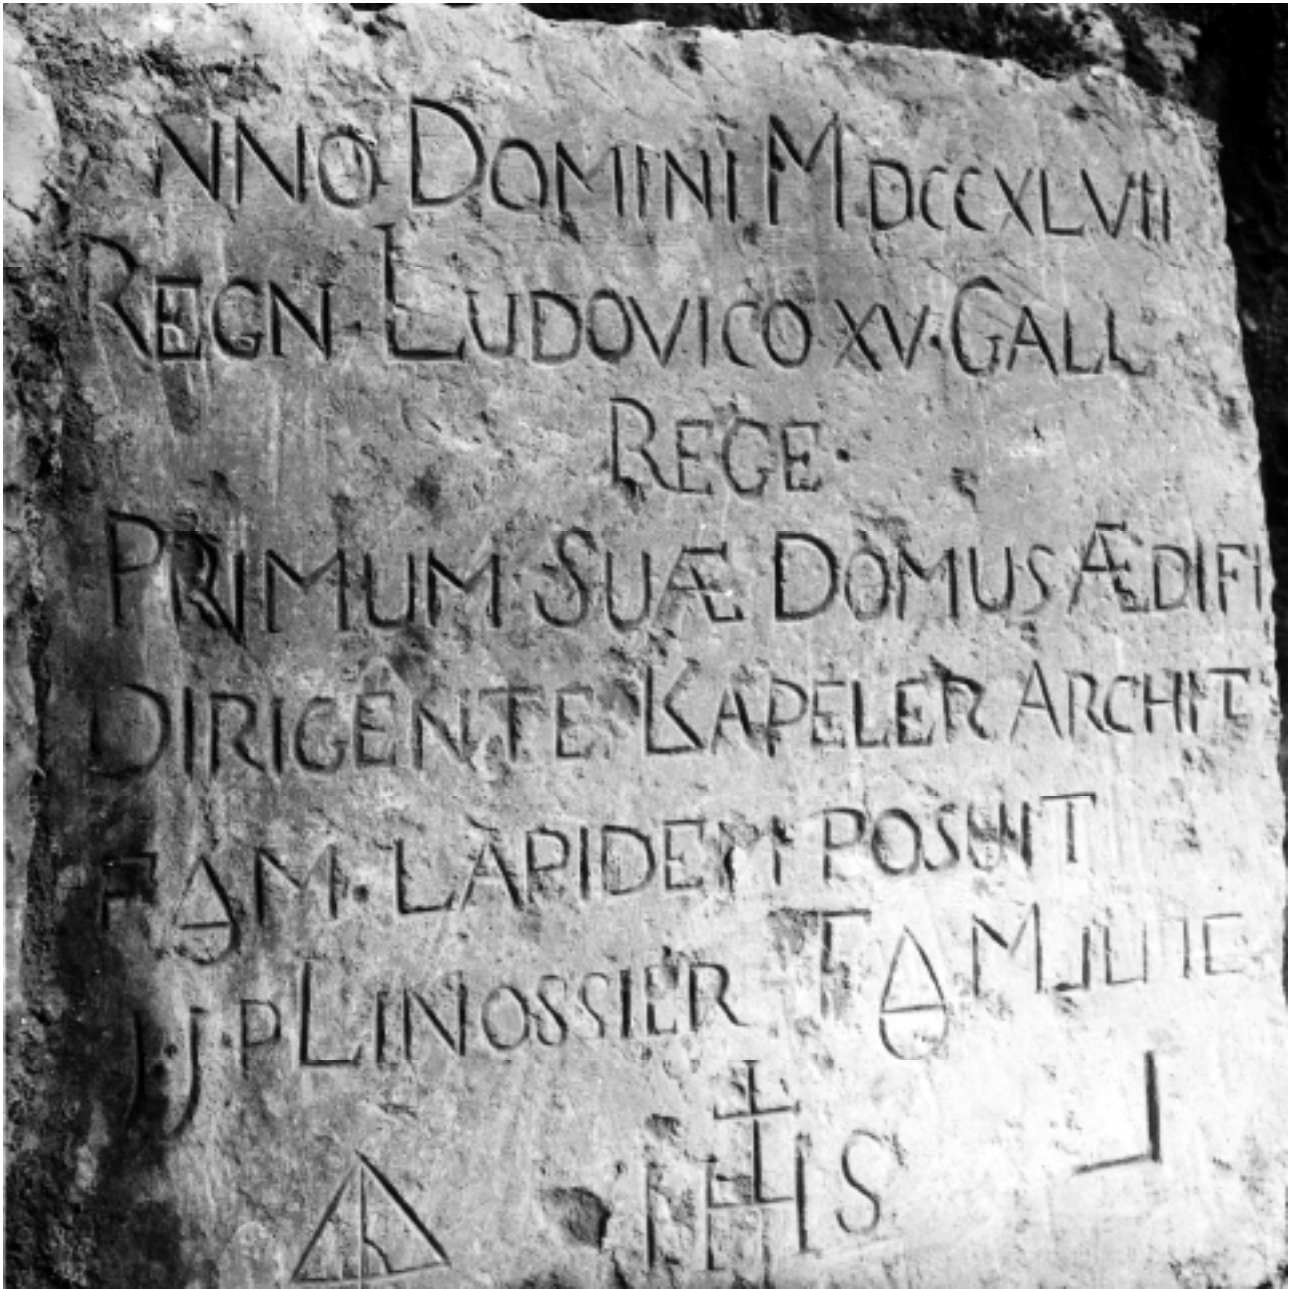 NNO DOMINI MDCCXLVII
REGN LUDOVICO XV·GALL
REGE·
PRIMUM SUÆ DOMUS ÆDIFI
DIRIGENTE KAPELER ARCHIT
FAM·LAPIDEM POSUIT
J·J·P LINOSSIER
IHS